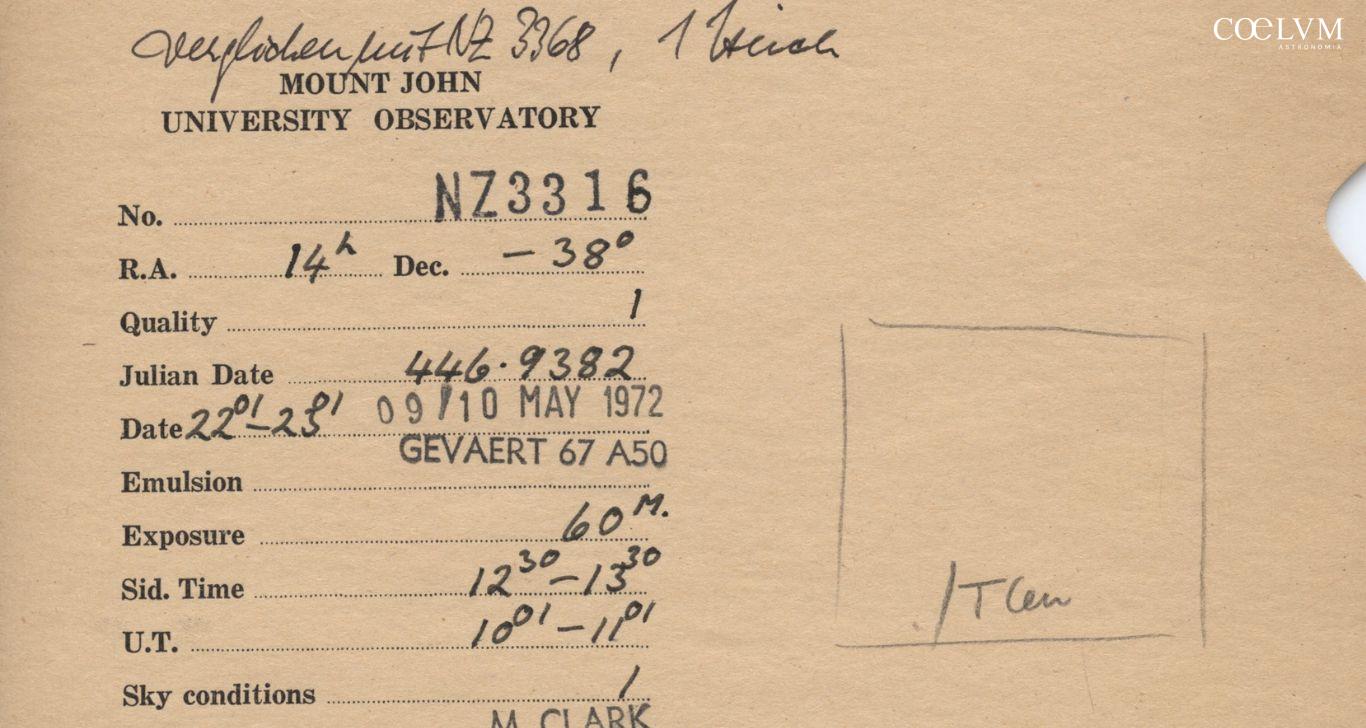 verglichen mit NZ 3368, 1
COELVM
ASTRONOMIA
MOUNT JOHN
UNIVERSITY OBSERVATORY
No. NZ3316
R.A. 14h Dec. -38°
Quality 1
Julian Date 446.9382
Date 22 01 - 23 01 09/10 MAY 1972
GEVAERT 67 A50
Emulsion
Exposure 60 M.
Sid. Time 12 30 - 13 30
U.T. 10 01 - 11 01
Sky conditions 1
M. CLARK
T Cen